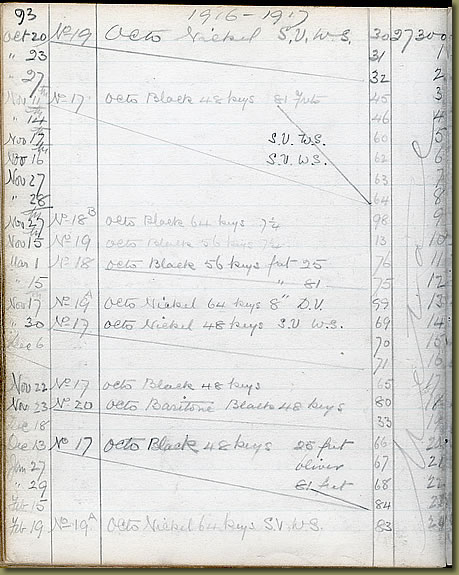 93 1916-1917
Oct 20 No 19 Octo Nickel S.V. W.S. 30 27300
" 23 31 1
" 27 32 2
Nov 11th No 17 Octo Black 48 keys 81 frets 45 3
" 14th 46 4
Nov 13th S.V. W.S. 60 5
Nov 16 S.V. W.S. 62 6
Nov 27 63 7
" 28 64 8
Nov 27th No 18B Octo Black 64 keys 7½ 98 9
Nov 15 No 19 Octo Black 56 keys 7½ 13 10
Mar 1 No 18 Octo Black 56 keys fret 25 76 11
" 15 " 81 75 12
Nov 17 No 19A Octo Nickel 64 keys 8" D.V. 99 13
" 30 No 17 Octo Nickel 48 keys S.V W.S. 69 14
Dec 6 70 15
71 16
Nov 22 No 17 Octo Black 48 keys 65 17
Nov 23 No 20 Octo Baritone Black 48 keys 80 18
Dec 18 33 19
Dec 13 No 17 Octo Black 48 keys 25 fret 66 20
Jan 27 oliver 67 21
" 29 81 fret 68 22
Feb 15 84 23
Feb 19 No 19A Octo Nickel 64 keys S.V. W.S. 83 24